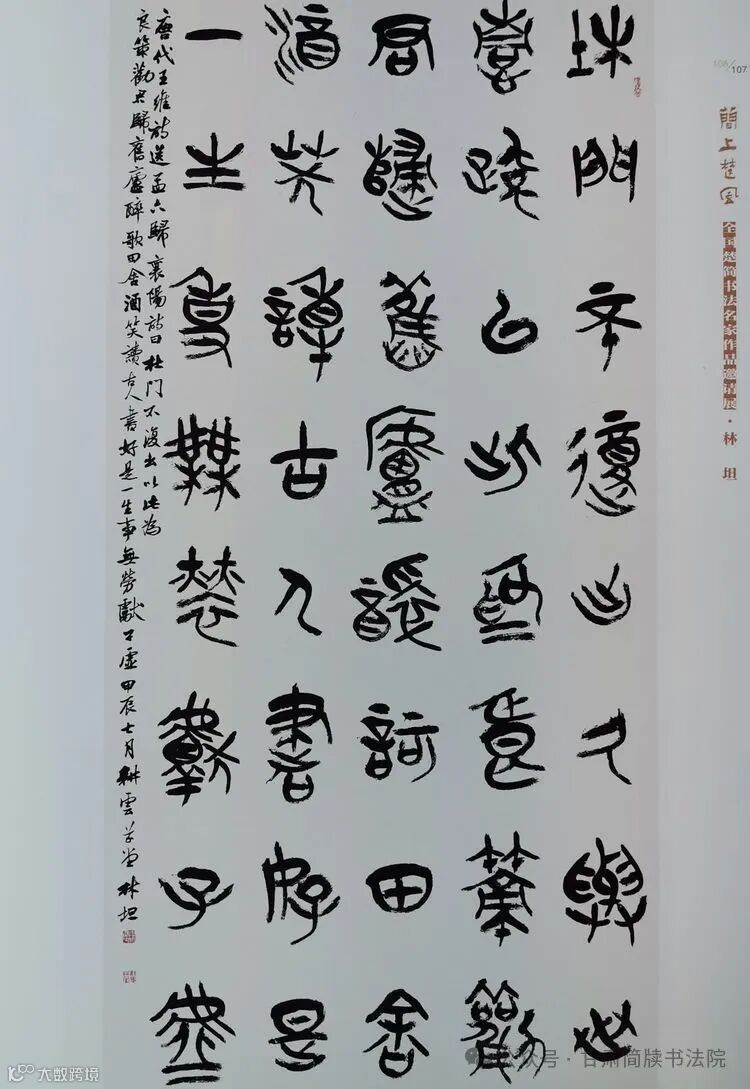 杜門不復出久與世
情疏以此為良策勸
君歸舊廬醉歌田舍
酒笑讀古人書好是
一生事無勞獻子虛
唐代王維詩送孟六歸襄陽詩曰杜門不復出以此為
良策勸君歸舊廬醉歌田舍酒笑讀古人書好是一生事無勞獻子虛甲辰七月耕雲草堂林坦
106/107
簡上楚風
全国楚简书法名家作品邀请展·林坦
公众号·甘肃简牍书法院
大数跨境